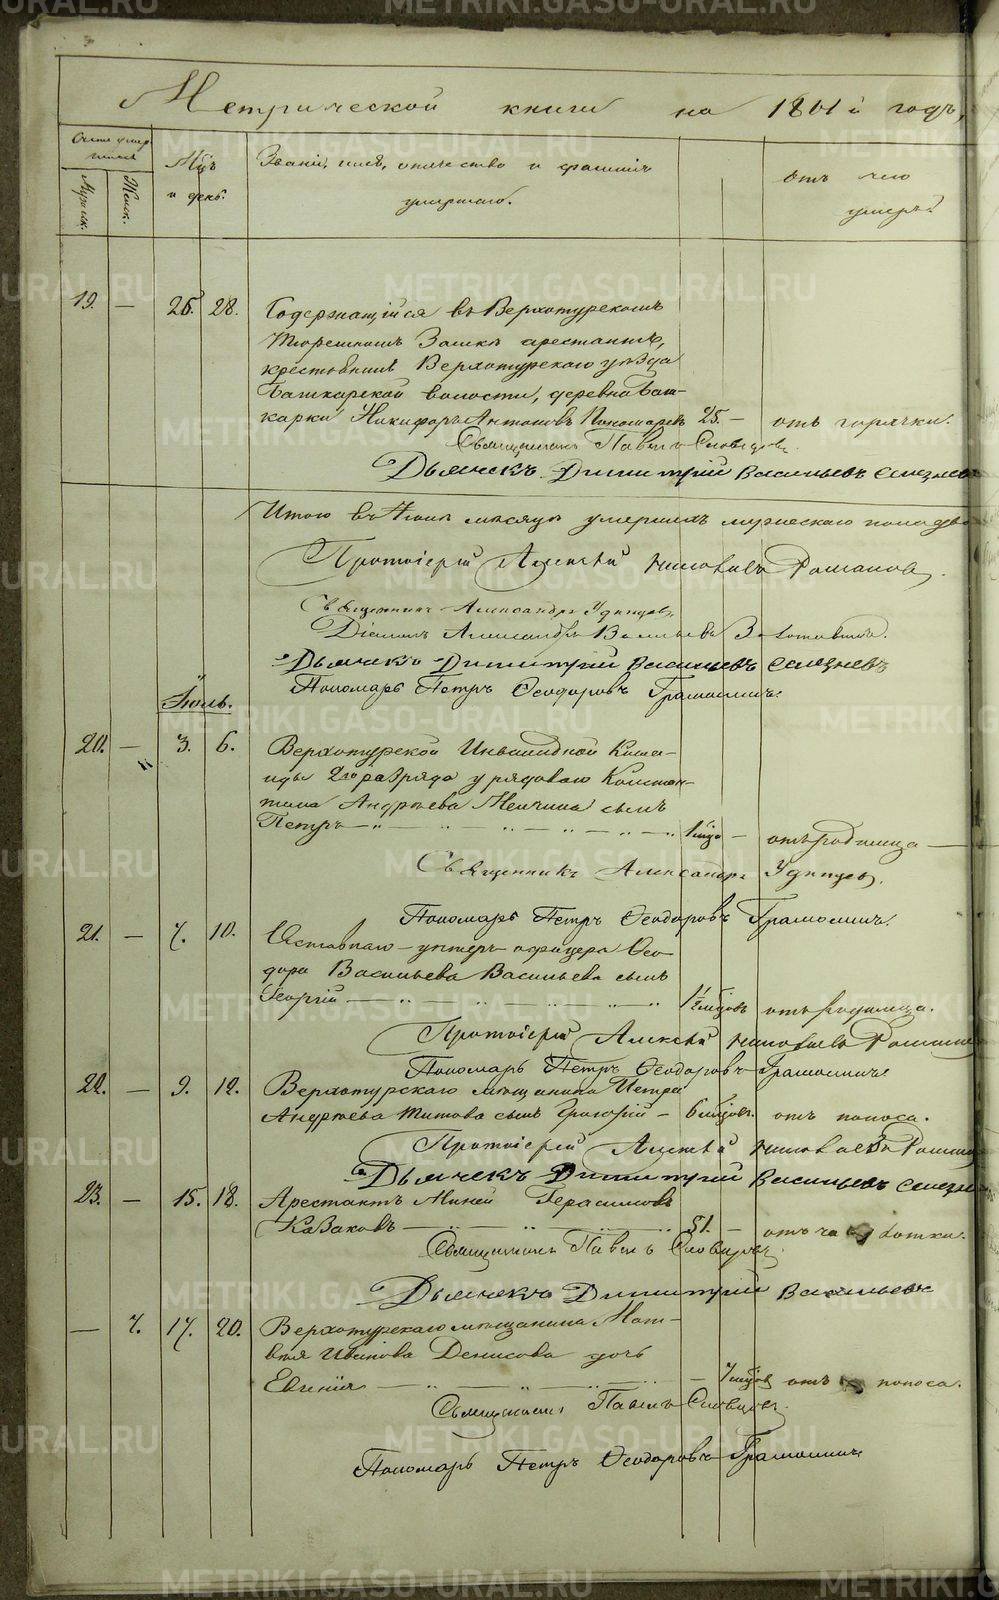 Метрической книги на 1861й годъ,
Счетъ умершихъ
Мужск.
Женск.
Мѣць и день.
Званіе, имя, отчество и фамилія умершаго.
отъ чего умеръ.
19. — 26. 28. Содержащійся въ Верхотурскомъ
Тюремномъ Замкѣ арестантъ,
крестьянинъ Верхотурскаго уѣзда
Башкарской волости, деревни Баш-
карки Никифоръ Антоновъ Пономаревъ 25. — отъ горячки.
Священникъ Павелъ Словцовъ.
Дьячекъ Димитрій Васильевъ Селезневъ
Итого въ Іюнѣ мѣсяцѣ умершихъ мужескаго пола два
Протоіерей Алексѣй Николаевъ Романовъ.
Священникъ Александръ Удинцовъ.
Діаконъ Александръ Васильевъ
Дьячекъ Димитрій Васильевъ Селезневъ
Пономарь Петръ Ѳеодоровъ Грамолинъ.
Іюль.
20. — 3. 6. Верхотурской Инвалидной Кома-
нды 2го разряда у рядоваго Констан-
тина Андреева сынъ
Петръ — 1 мца — отъ родимца —
Священникъ Александръ Удинцевъ.
Пономарь Петръ Ѳеодоровъ Грамолинъ.
21. — 7. 10. Отставнаго унтеръ-офицера Ѳео-
дора Васильева Васильева сынъ
Георгій — 1½ мцовъ отъ родимца.
Протоіерей Алексѣй Николаевъ Романовъ
Пономарь Петръ Ѳеодоровъ Грамолинъ
22. — 9. 12. Верхотурскаго мѣщанина Петра
Андреева Титова сынъ Григорій — 6 мцовъ. отъ поноса.
Протоіерей Алексѣй Николаевъ Романовъ
Дьячекъ Димитрій Васильевъ Селезневъ
23. — 15. 18. Арестантъ Миней Герасимовъ
Казаковъ — 51. — отъ чахотки.
Священникъ Павелъ Словцовъ.
Дьячекъ Димитрій Васильевъ
— 7. 17. 20. Верхотурскаго мѣщанина Мат-
вѣя Иванова Денисова дочь
Евгенія — 7 мцовъ отъ поноса.
Священникъ Павелъ Словцовъ.
Пономарь Петръ Ѳеодоровъ Грамолинъ
METRIKI.GASO-URAL.RU